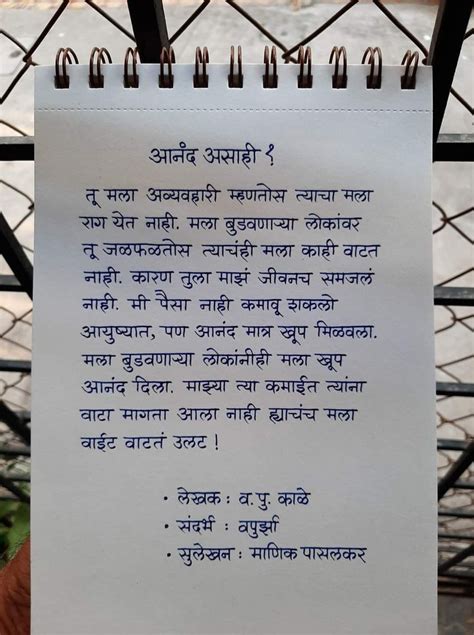 आनंद असाही !
तू मला अव्यवहारी म्हणतोस त्याचा मला
राग येत नाही. मला बुडवणाऱ्या लोकांवर
तू जळफळतोस त्याचंही मला काही वाटत
नाही. कारण तुला माझं जीवनच समजलं
नाही. मी पैसा नाही कमावू शकलो
आयुष्यात, पण आनंद मात्र खूप मिळवला.
मला बुडवणाऱ्या लोकांनीही मला खूप
आनंद दिला. माझ्या त्या कमाईत त्यांना
वाटा मागता आला नाही ह्याचंच मला
वाईट वाटतं उलट !
• लेखक : व. पु. काळे
• संदर्भ : वपुर्झा
• सुलेखन : माणिक पासलकर